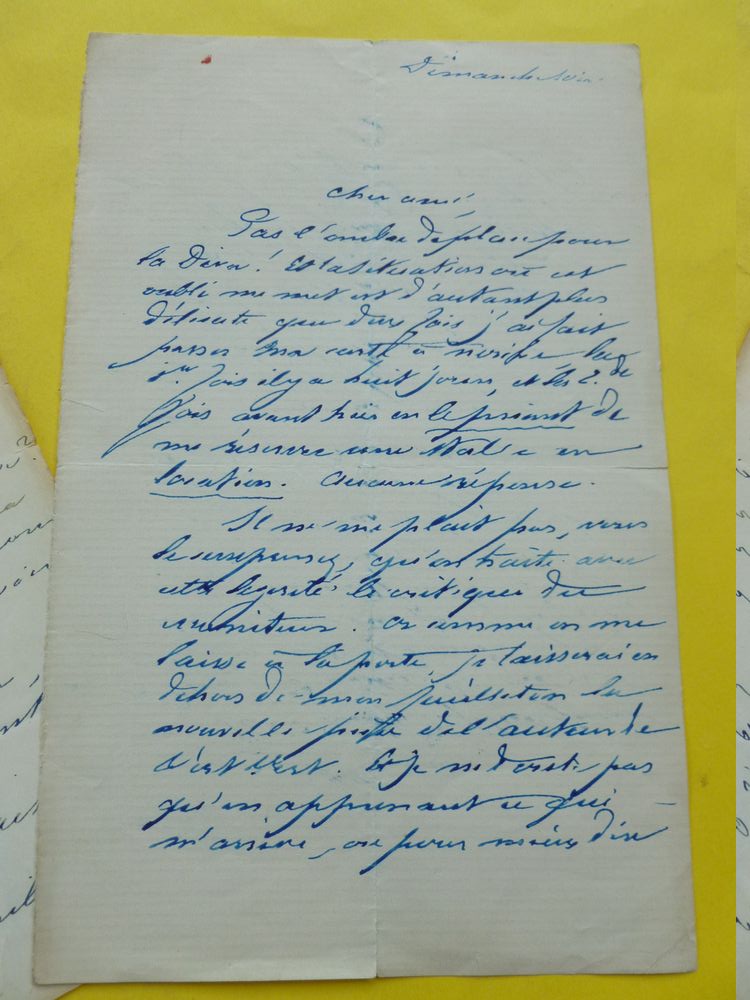 Dimanche soir.
Cher ami,
Pas l'ombre de place pour
la Diva ! Et la situation où cet
oubli me met est d'autant plus
délicate que deux fois j'ai fait
passer ma carte à la
1re fois il y a huit jours, et la 2de
fois avant hier en le priant de
me réserver une stalle en
location. Aucune réponse.
Il ne me plait pas, vous
le comprenez, qu'on traite avec
cette légèreté le critique du
Moniteur. Or comme on me
laisse à la porte, je laisserai en
dehors de mon feuilleton la
nouvelle pièce de l'auteur de
. Et je ne doute pas
qu'en apprenant ce qui
m'arrive, ou pour mieux dire